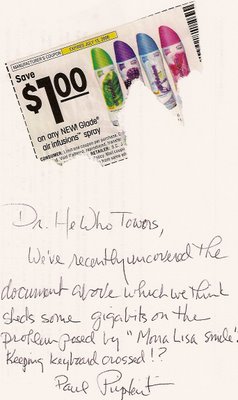 MANUFACTURER'S COUPON EXPIRES JULY 15, 2006
Save
$1.00
on any NEW! Glade®
air infusions™ spray
CONSUMER: Limit one coupon per purchase.
RETAILER: S.C.
Dr. He Who Towers,
We've recently uncovered the
document above which we think
sheds some gigabits on the
problem posed by "Mona Lisa smile".
Keeping keyboard crossed!?
Paul